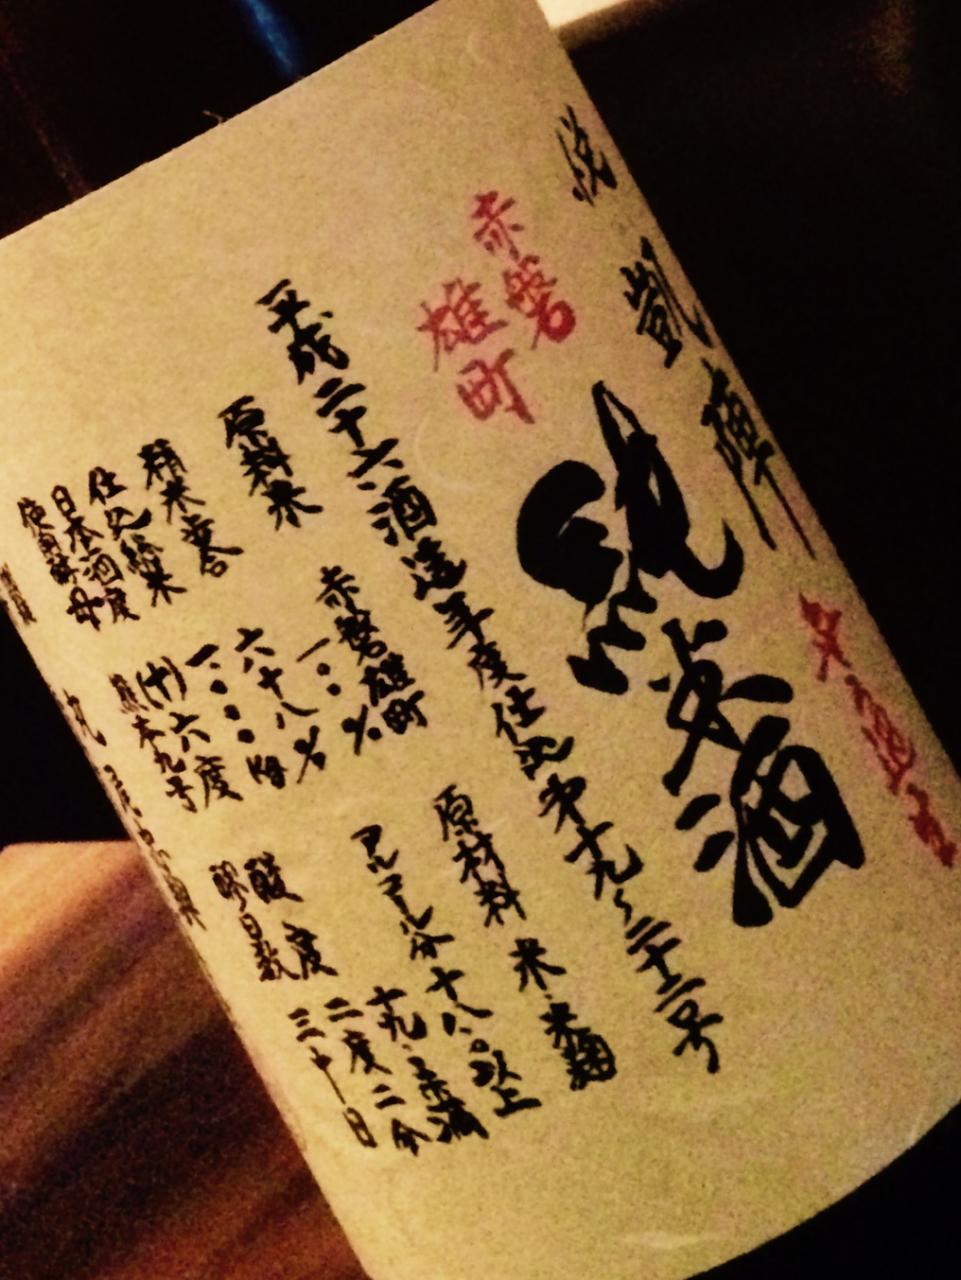 悦凱陣
純米酒
赤磐
雄町
平成二十六酒造年度仕込第十九〜二十二号
原料米 赤磐雄町
一〇〇%
原材料 米・米麹
精米歩合 六十八%
アルコール分 十八.〇以上
十九.〇未満
仕込総米 一〇〇〇瓩
日本酒度 (十)六度
酸度 二度二分
使用酵母 熊本九号
醪日数 三十日